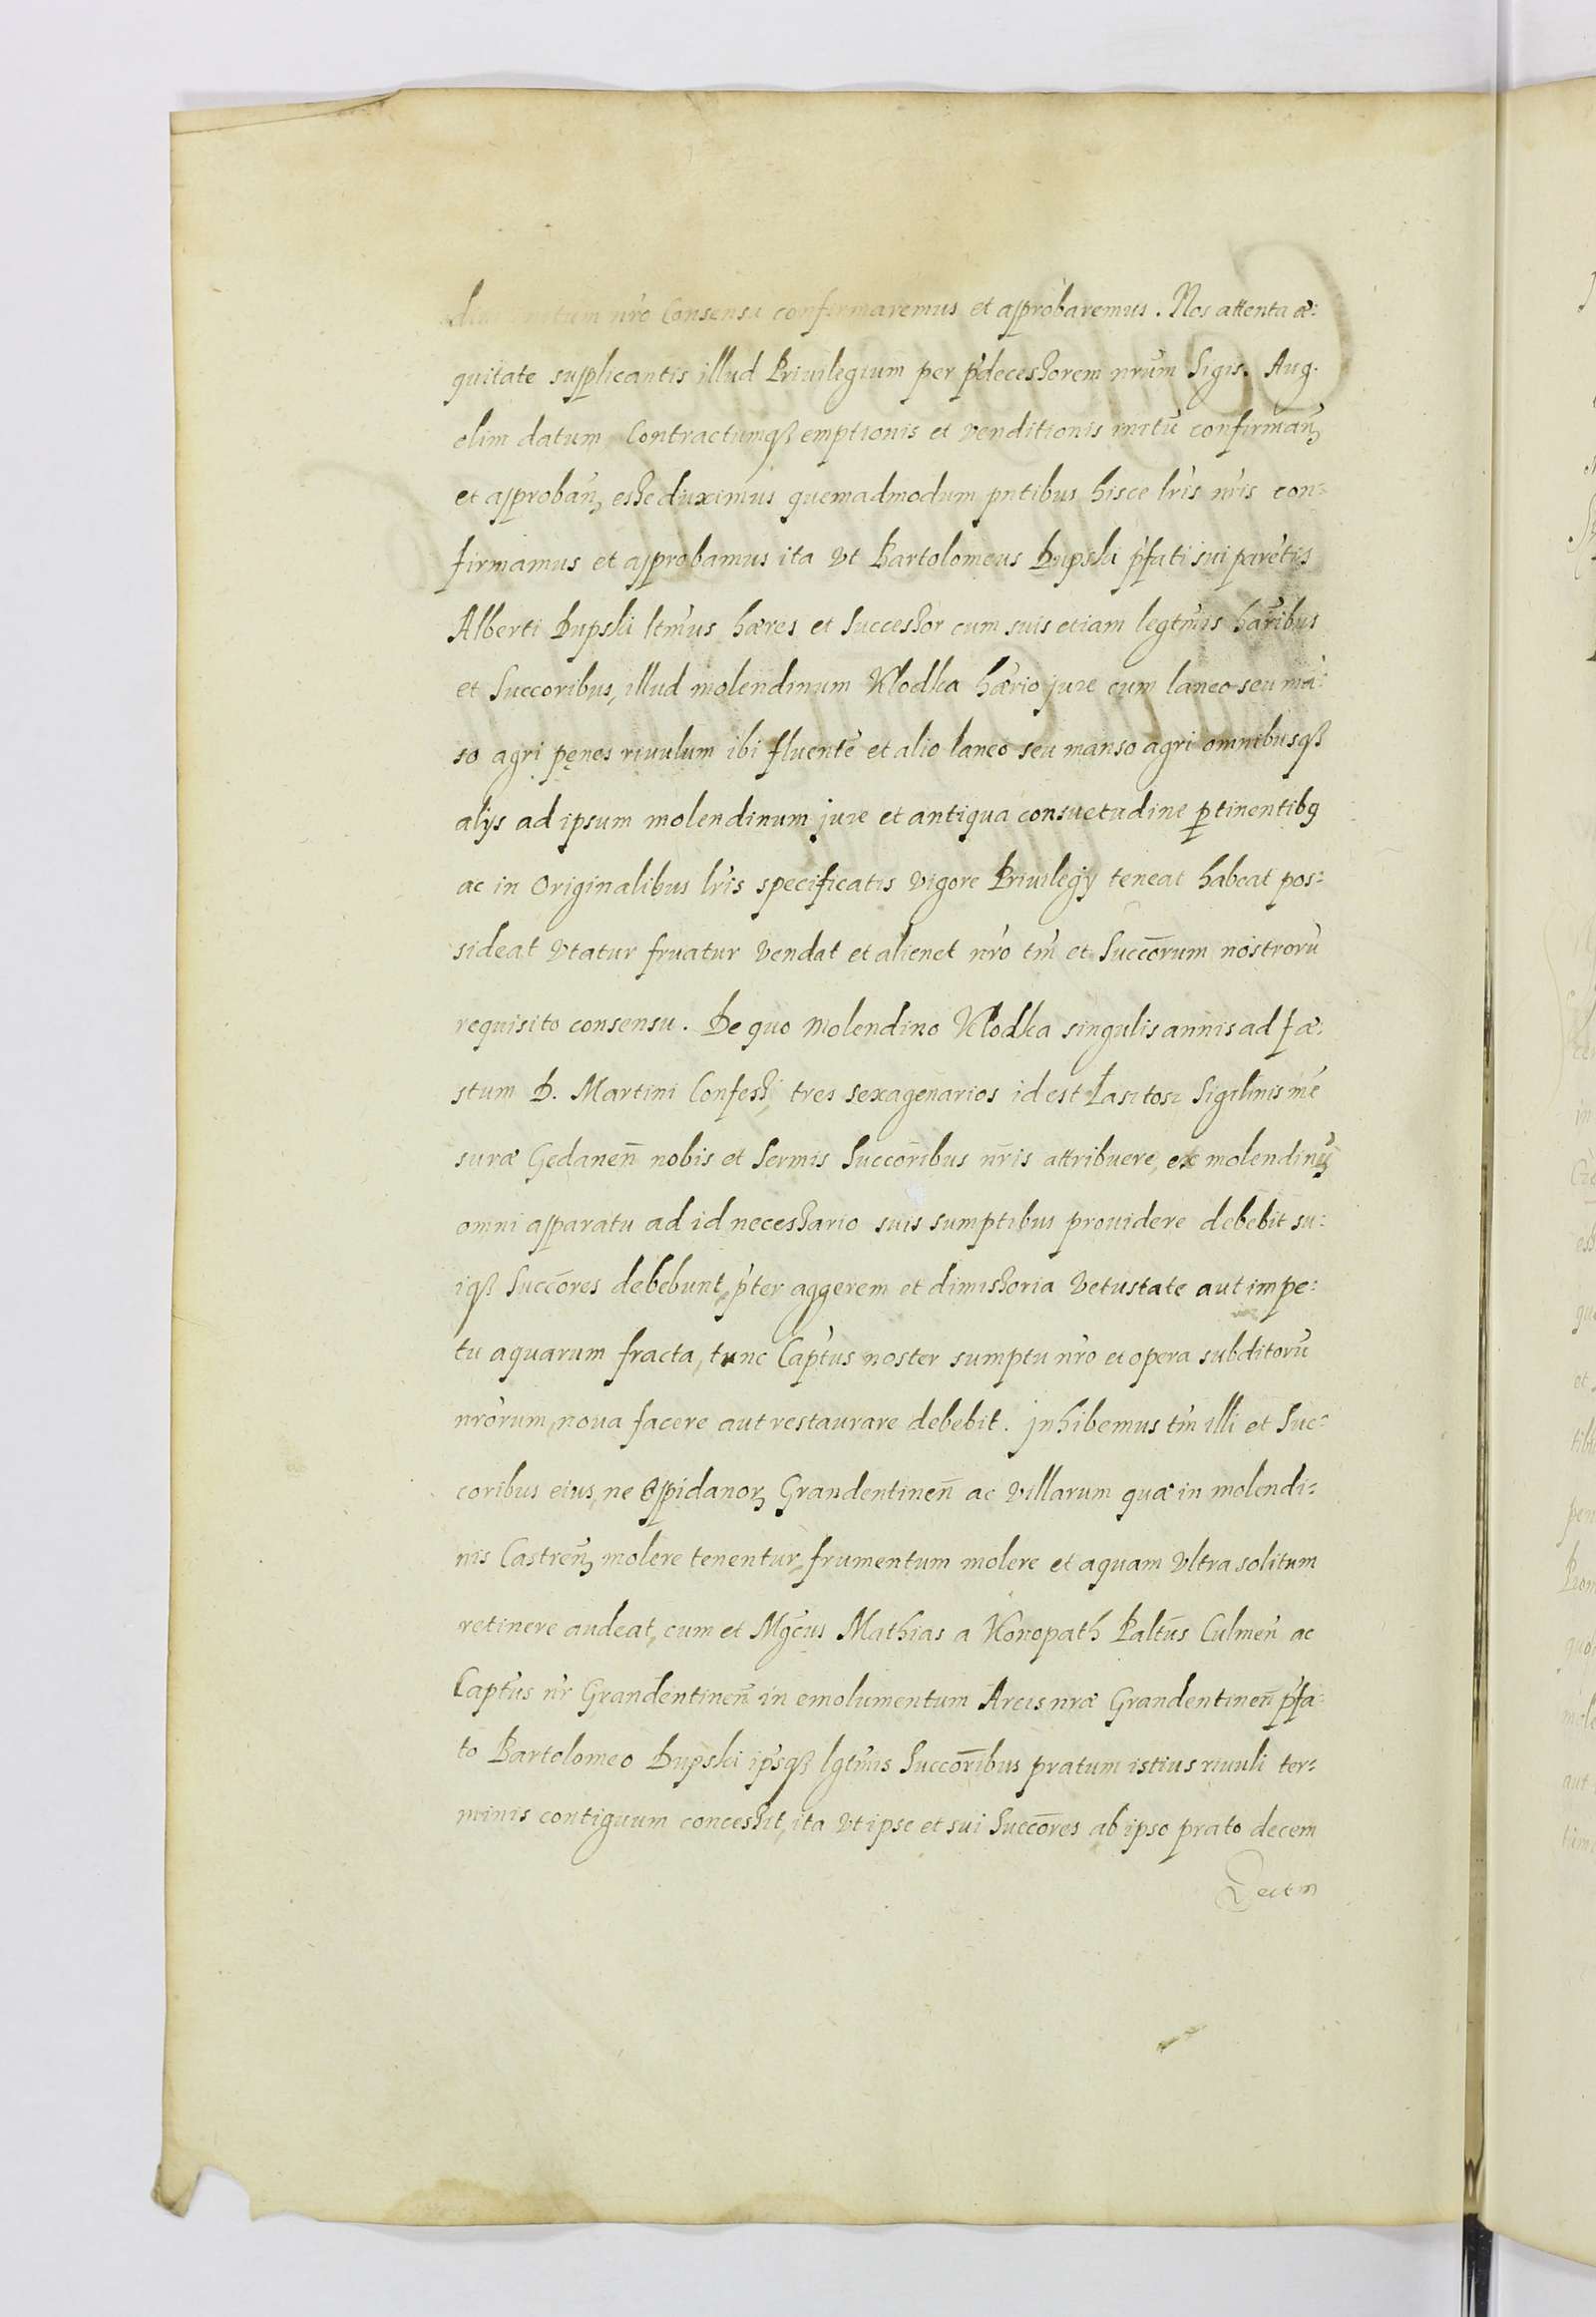 nr̃o Consensu confirmaremus et approbaremus. Nos attenta æ:
quitate supplicantis illud Priuilegium per p̃decessorem nrũm Sigis. Aug.
olim datum, Contractumqꝫ emptionis et venditionis initũ confirmanꝫ
et approbanꝫ esse duximus quemadmodum pñtibus hisce lr̃is nr̃is con:
firmamus et approbamus ita vt Bartolomeus Dupski p̃fati sui parẽtis
Alberti Dupski ltm̃us hæres et Successor cum suis etiam legtm̃is hær̃ibus
et Succoribus, illud molendinum Klodka hær̃io jure cum laneo seu mã:
so agri pęnes riuulum ibi fluentẽ et alio laneo seu manso agri omnibusqꝫ
alijs ad ipsum molendinum jure et antiqua consuetudine ꝑtinentibꝰ
ac in Originalibus lr̃is specificatis vigore Priuilegij teneat habeat pos:
sideat vtatur fruatur vendat et alienet nr̃o tm̃ et Succõrum nostrorũ
requisito consensu. De quo molendino Klodka singulis annis ad fæ:
stum D. Martini Confess, tres sexagenarios id est Lasztosz Sigilinis mẽ
suræ Gedaneñ nobis et Sermis Succõribus nr̃is attribuere, ex molendinũ
omni apparatu ad id necessario suis sumptibus prouidere debebit su:
iqꝫ Succõres debebunt, p̃ter aggerem et dimissoria vetustate aut impe:
tu aquarum fracta, tunc Capt̃us noster sumptu nr̃o et opera subditorũ
nr̃orum, noua facere aut restaurare debebit. Inhibemus tm̃ illi et Suc:
coribus eius, ne oppidanorꝫ Grandentineñ ac villarum quæ in molendi:
nis Castrenꝫ molere tenentur, frumentum molere et aquam vltra solitum
retinere audeat, cum et Mg̃cus Mathias a Konopath Palt̃us Culmeñ ac
Capt̃us nr̃ Grandentineñ in emolumentum Arcis nræ Grandentineñ p̃fa:
to Bartolomeo Dupski ip̃sqꝫ lgtm̃is Succõribus pratum istius riuuli ter:
minis contiguum concessit, ita vt ipse et sui Succõres ab ipso prato decem